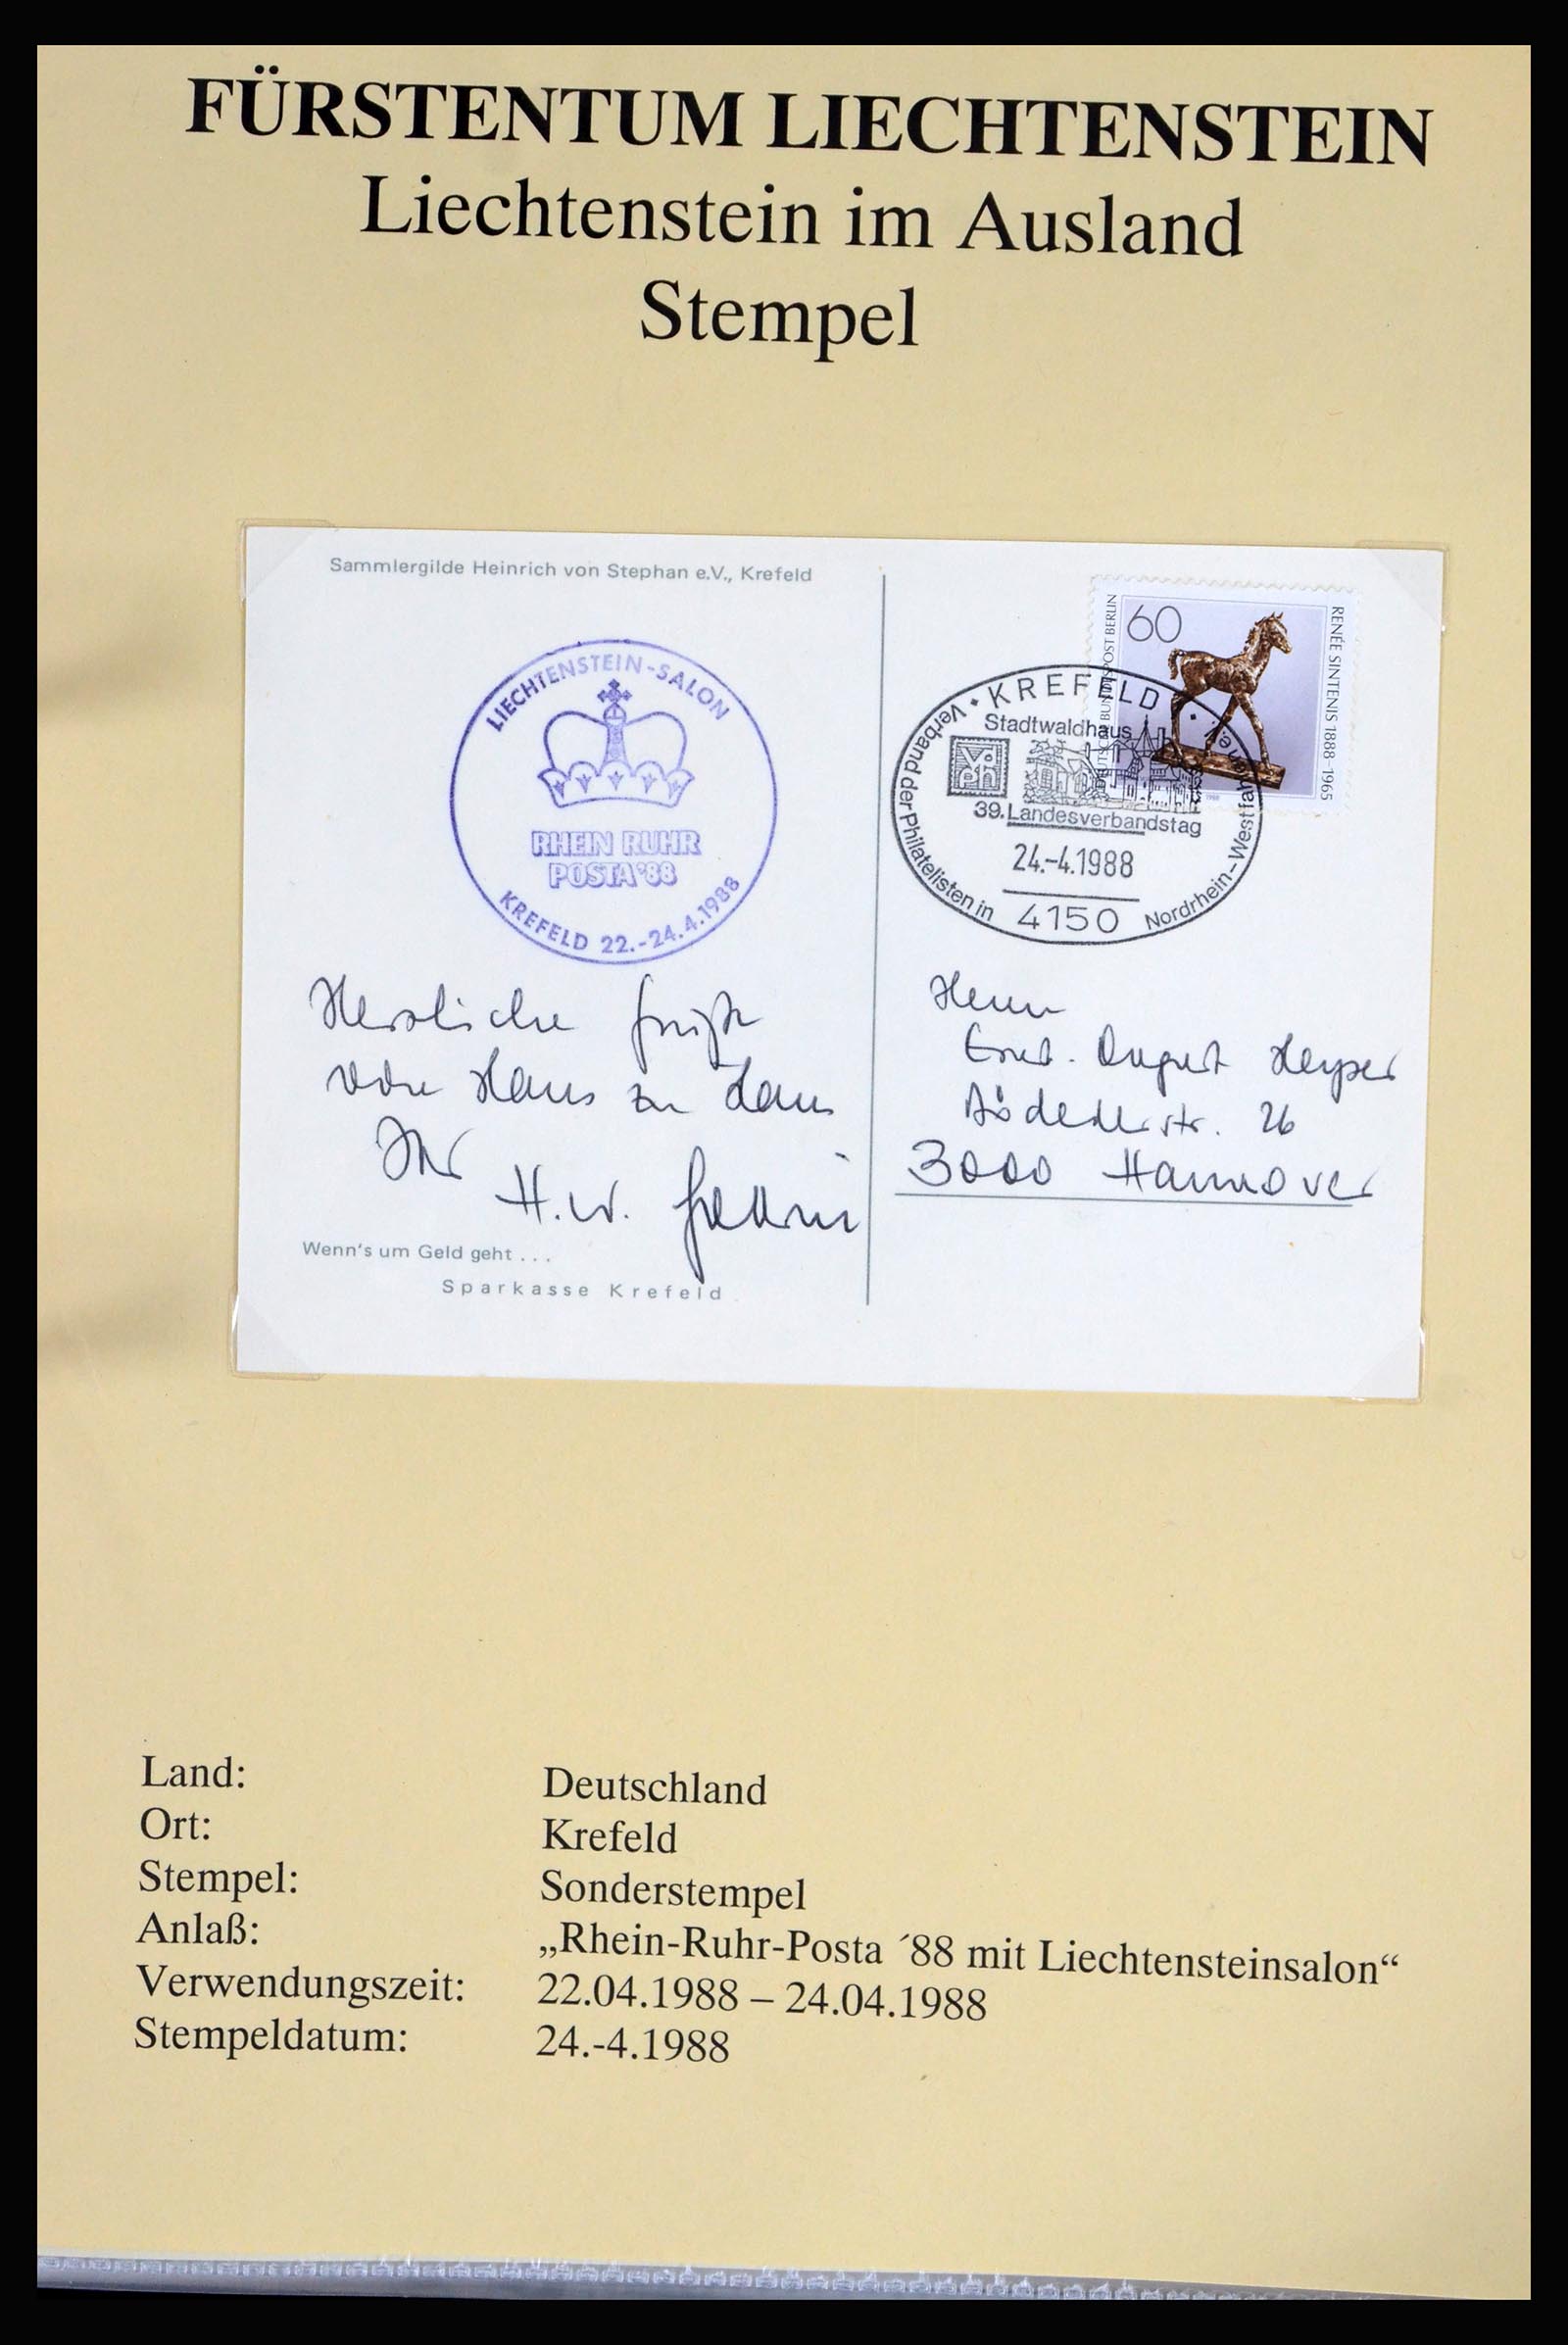 FÜRSTENTUM LIECHTENSTEIN
Liechtenstein im Ausland
Stempel
Sammlergilde Heinrich von Stephan e.V., Krefeld
LIECHTENSTEIN-SALON
RHEIN RUHR
POSTA'88
KREFELD 22.-24.4.1988
Herzliche Grüße
von Haus zu Haus
Ihr
H.W.
Wenn's um Geld geht . . .
Sparkasse Krefeld
60
DEUTSCHE BUNDESPOST BERLIN
RENÉE SINTENIS 1888-1965
• KREFELD •
Stadtwaldhaus
39. Landesverbandstag
24.-4.1988
4150
Verband der Philatelisten in Nordrhein-Westfalen e.V.
Herrn
Ernst-August
str. 26
3000 Hannover
Land: Deutschland
Ort: Krefeld
Stempel: Sonderstempel
Anlaß: „Rhein-Ruhr-Posta ´88 mit Liechtensteinsalon“
Verwendungszeit: 22.04.1988 – 24.04.1988
Stempeldatum: 24.-4.1988